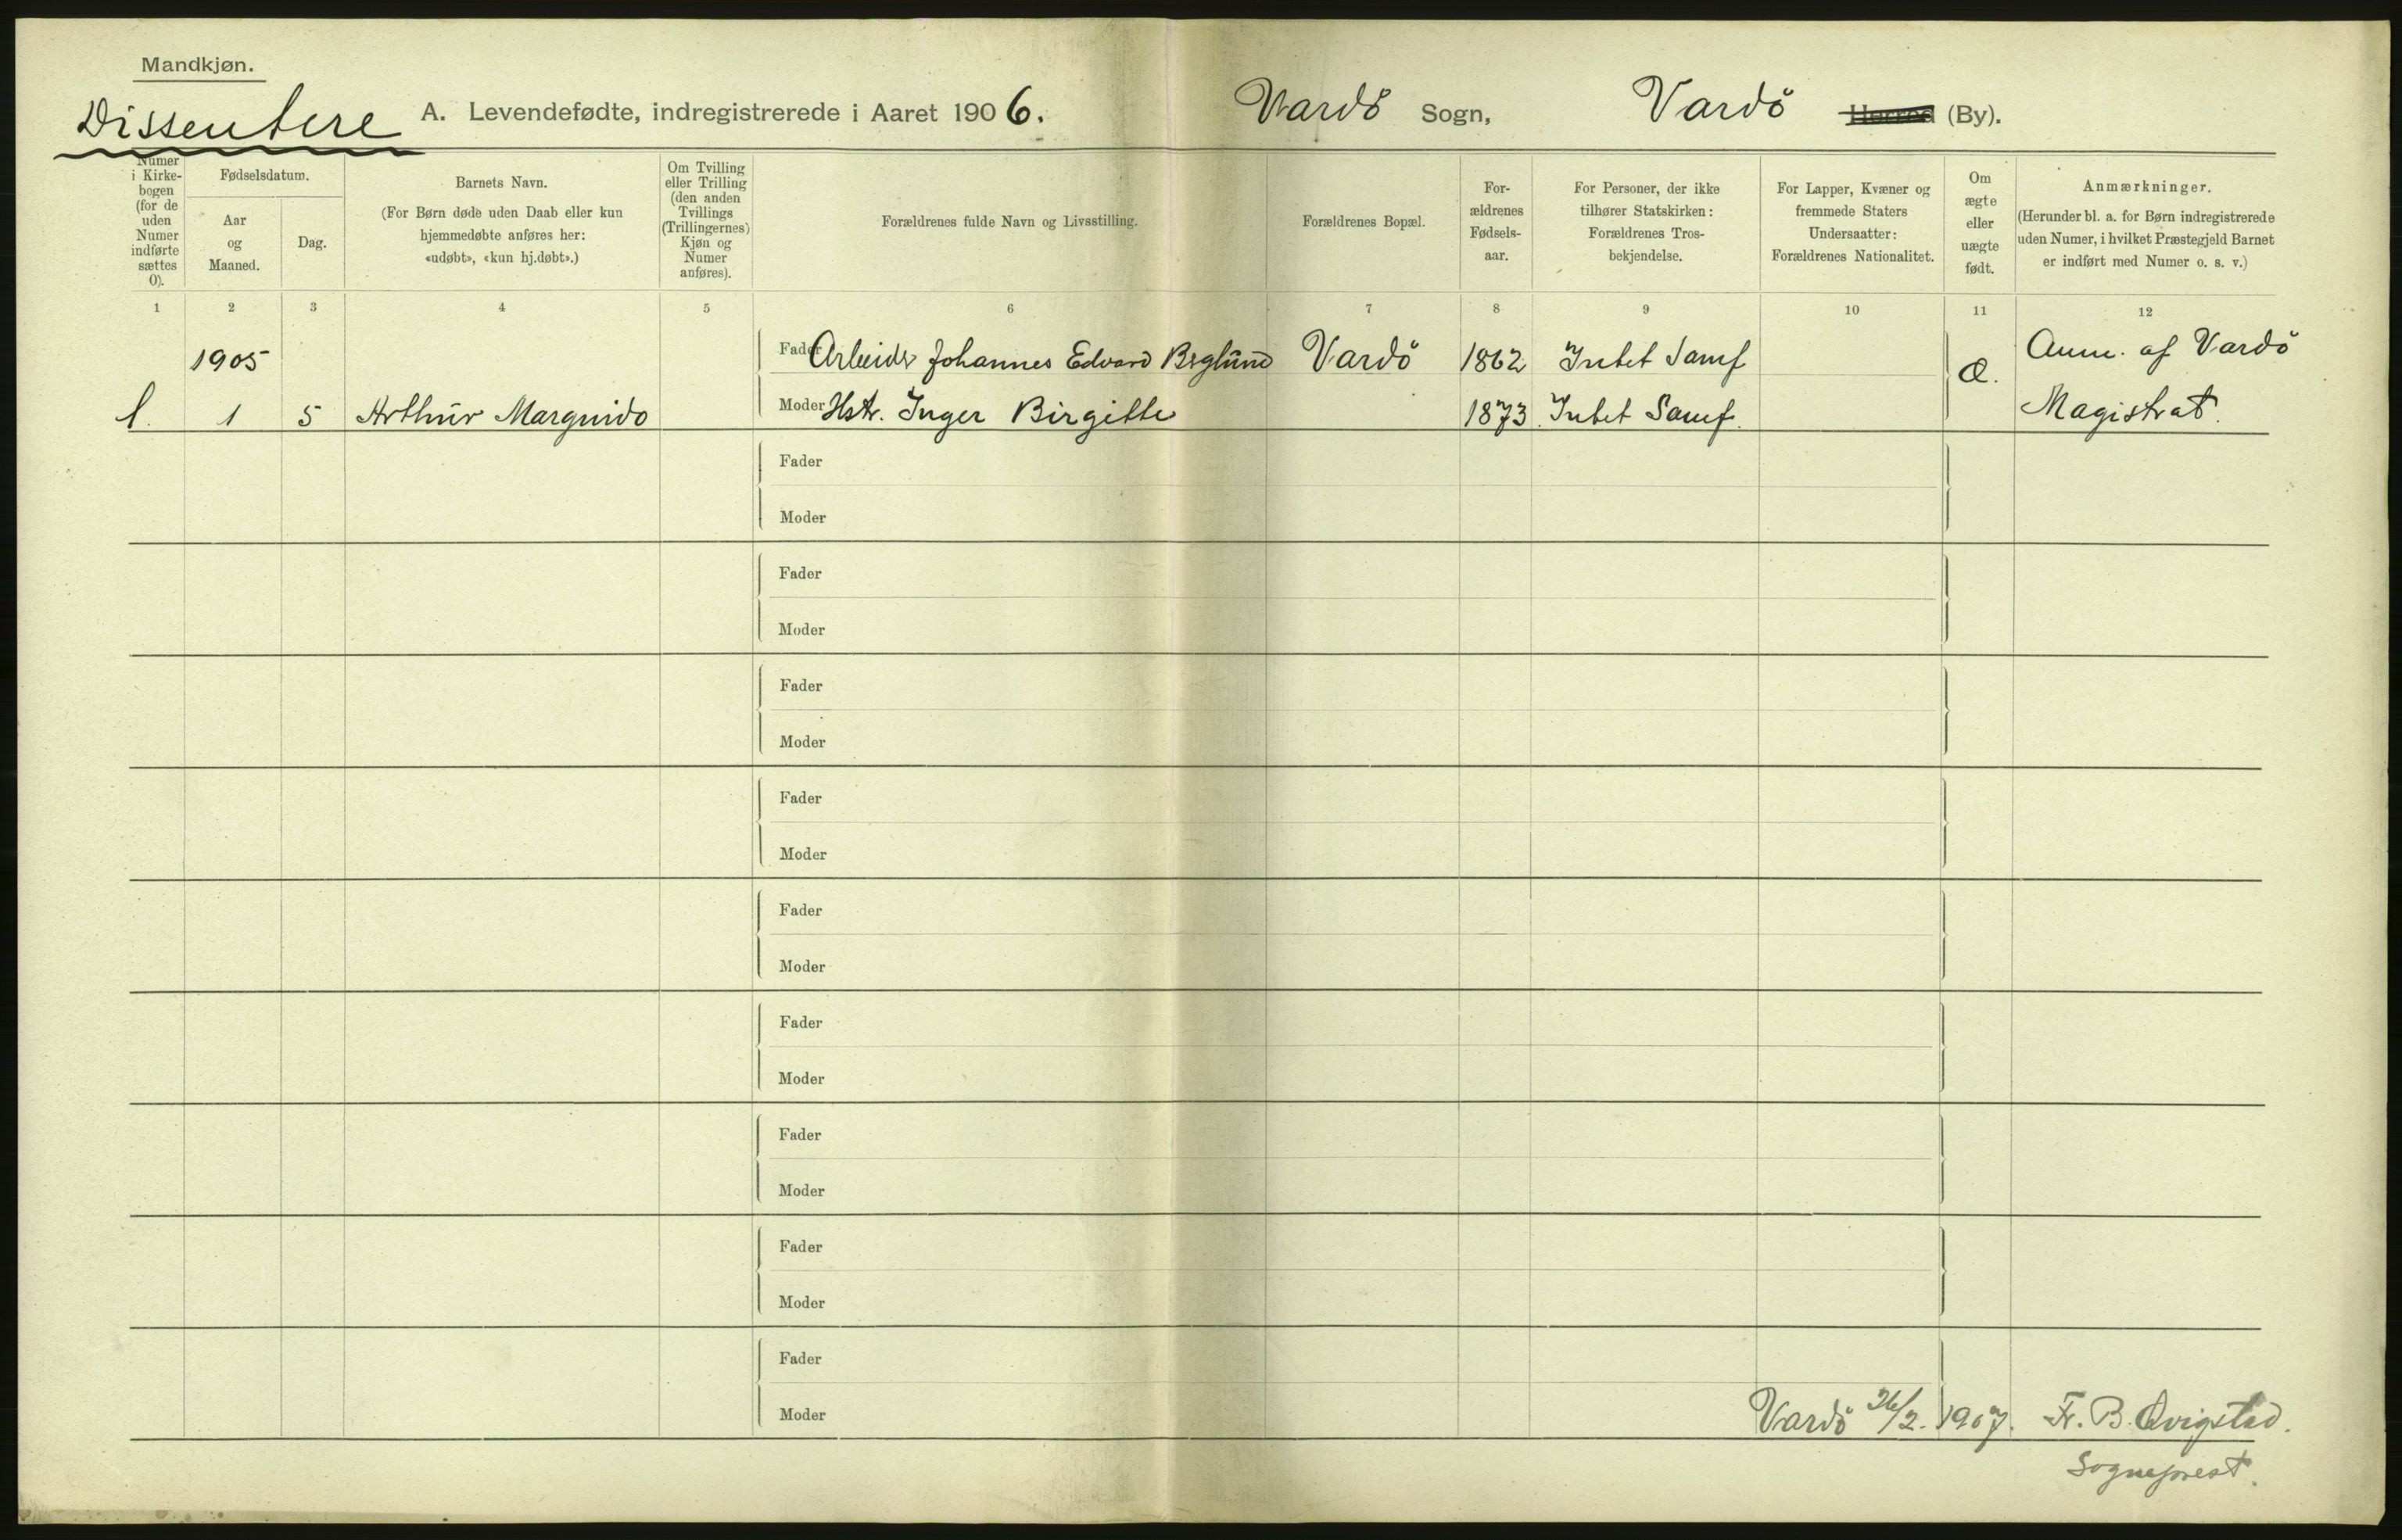 Mandkjøn.
Dissentere A. Levendefødte, indregistrerede i Aaret 1906. Vardö Sogn, Vardö Herred (By).
Numer i Kirke-bogen (for de uden Numer indførte sættes 0).
Fødselsdatum.
Aar og Maaned.
Dag.
Barnets Navn.
(For Børn døde uden Daab eller kun
hjemmedøbte anføres her:
«udøbt», «kun hj.døbt».)
Om Tvilling
eller Trilling
(den anden
Tvillings
(Trillingernes)
Kjøn og
Numer
anføres).
Forældrenes fulde Navn og Livsstilling.
Forældrenes Bopæl.
For-
ældrenes
Fødsels-
aar.
For Personer, der ikke
tilhører Statskirken:
Forældrenes Tros-
bekjendelse.
For Lapper, Kvæner og
fremmede Staters
Undersaatter:
Forældrenes Nationalitet.
Om
ægte
eller
uægte
født.
Anmærkninger.
(Herunder bl. a. for Børn indregistrerede
uden Numer, i hvilket Præstegjeld Barnet
er indført med Numer o. s. v.)
1 2 3 4 5 6 7 8 9 10 11 12
1905 Fader Arbeider Johannes Edvard Berglund Vardö 1862 Intet Samf Æ. Anm. af Vardö
1. 1 5 Arthur Marguido Moder Hstr. Inger Birgitte 1873 Intet Samf. Magistrat.
Fader
Moder
Fader
Moder
Fader
Moder
Fader
Moder
Fader
Moder
Fader
Moder
Fader
Moder
Fader
Moder
Fader
Moder
Vardö 26/2. 1907. Fr. B. Qvigstad.
Sogneprest.